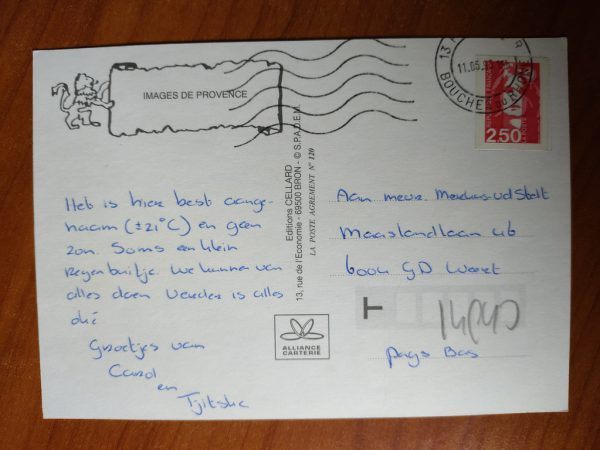 IMAGES DE PROVENCE
11.05.93
BOUCHES DU RHONE
2,50
Het is hier best aange-
naam (±21°C) en geen
zon. Soms een klein
Regenbuitje. We kunnen van
alles doen Verder is alles
oké
Groetjes van
Carol
en
Tjitske
Editions CELLARD
13, rue de l'Economie - 69500 BRON - © S.P.A.D.E.M.
LA POSTE AGREMENT N° 120
ALLIANCE
CARTERIE
Aan mevr. v.d Stelt
Maaslandlaan 46
6004 GD Weert
T
Pays Bas